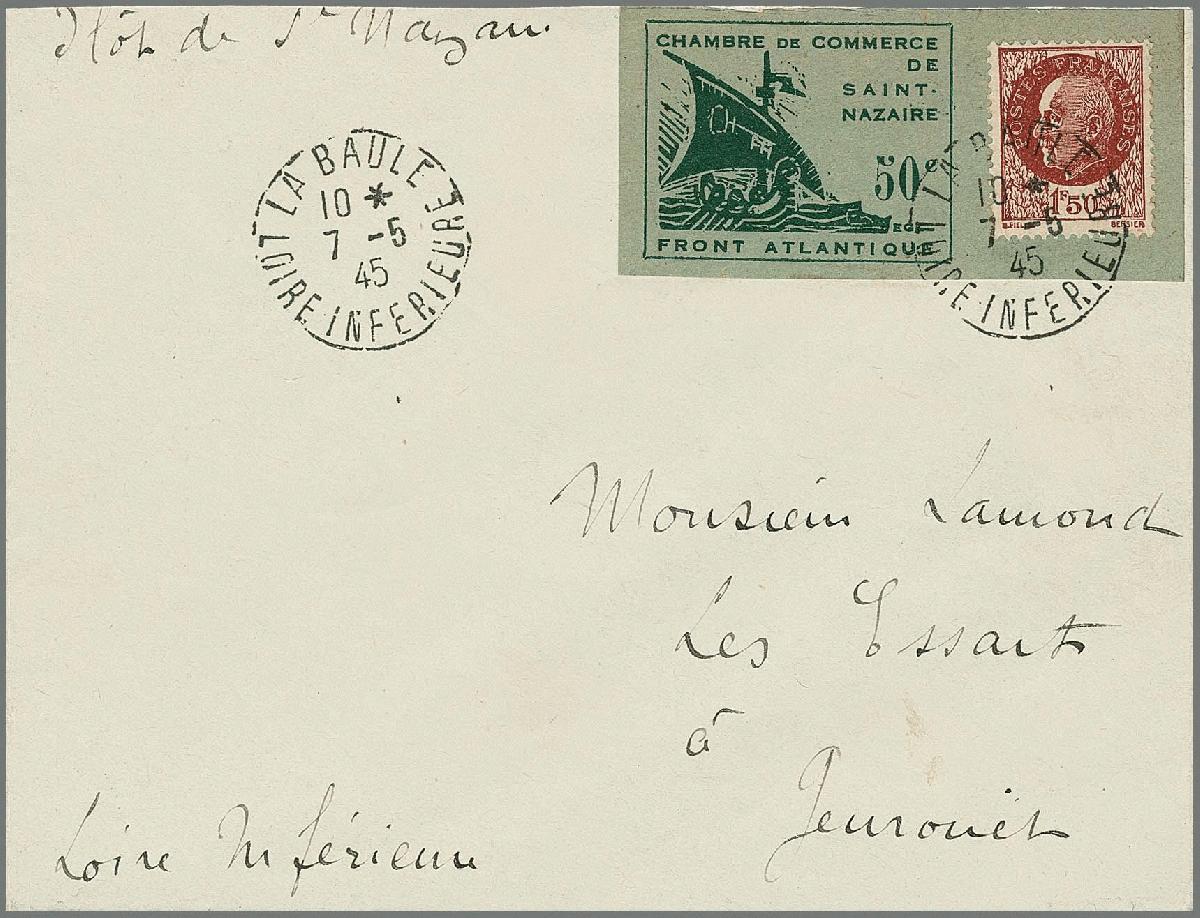 Ilôt de St Nazaire
CHAMBRE DE COMMERCE
DE
SAINT-
NAZAIRE
50c
FRONT ATLANTIQUE
POSTES FRANÇAISES
1F50
BERSIER
LA BAULE
LOIRE INFERIEURE
10 *
7 -5
45
LA BAULE
LOIRE INFERIEURE
10 *
7 -5
45
Monsieur Lamond
Les Essarts
à
Loire Inférieure